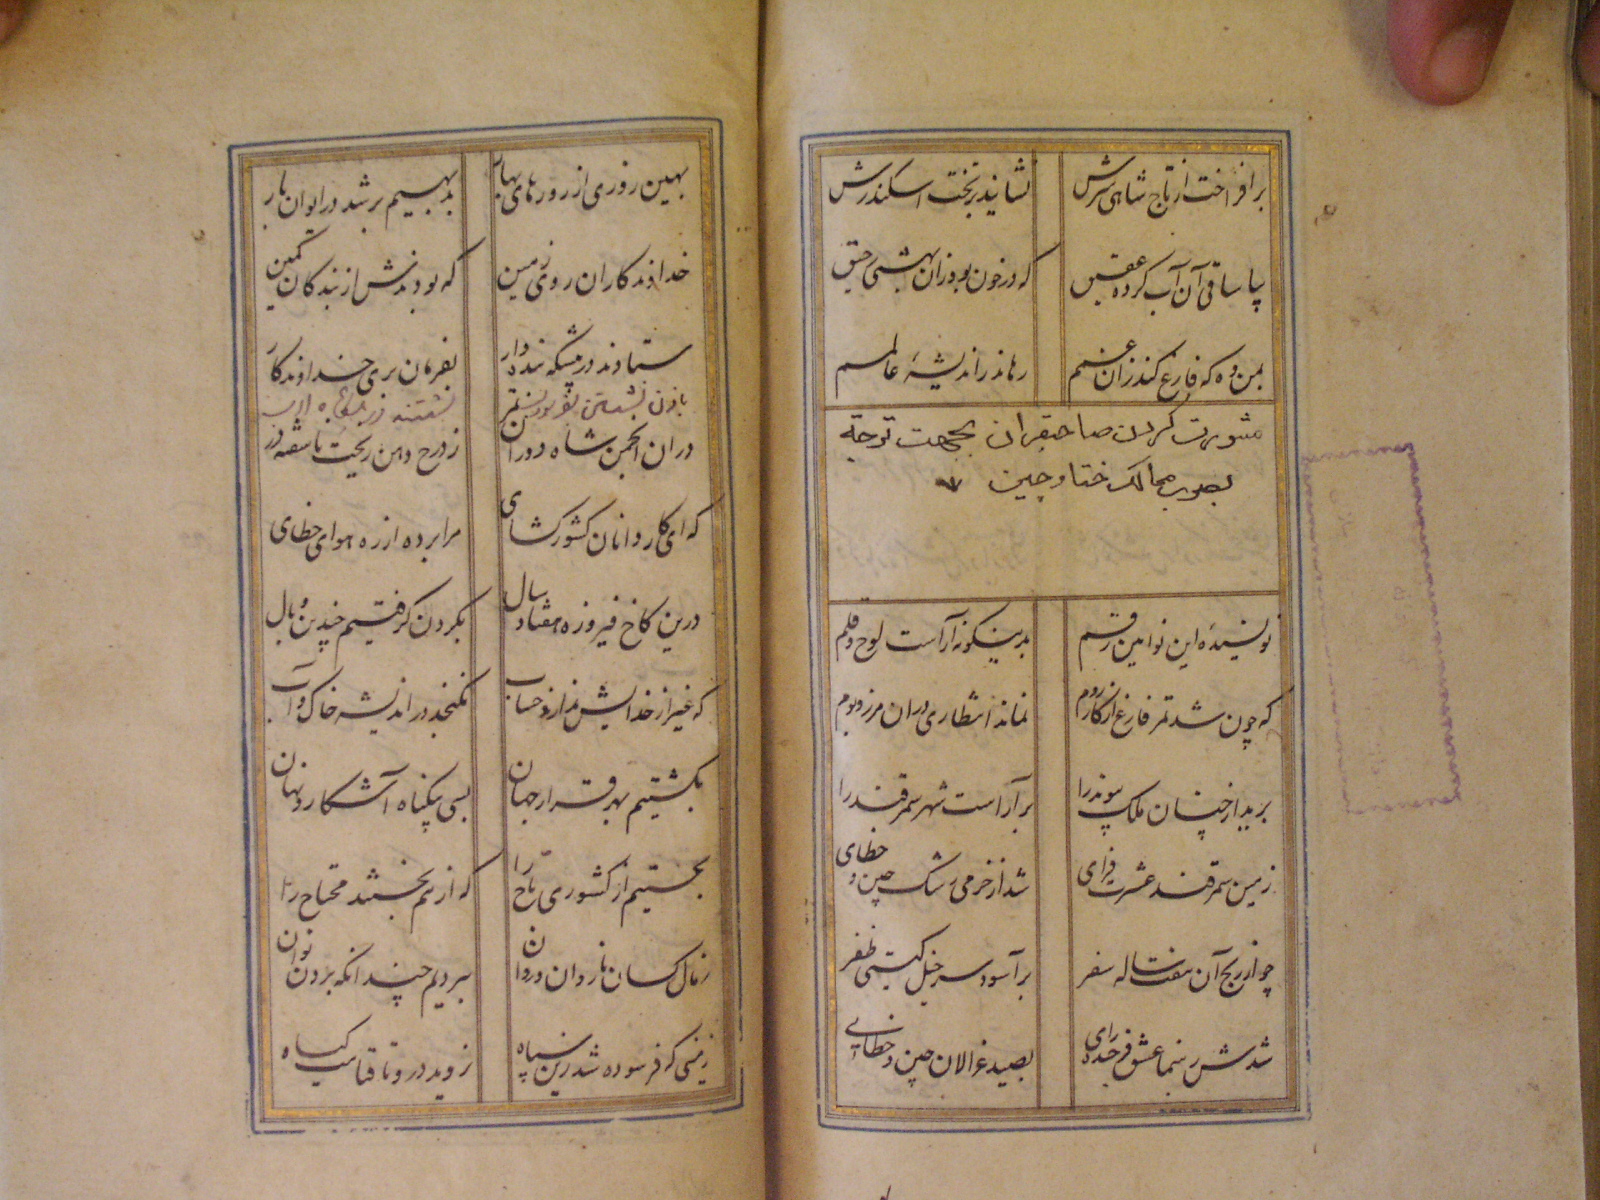 برافراخت از تاج شاهی سرش نشانید بر تخت اسکندرش
بیا ساقی آن آب کرده عقیق که در خون بود زان بهشتی رحیق
بمن ده که فارغ کند زان غمم رهاند ز اندیشهٔ عالمم
مشورت کردن صاحبقران بجهت توجه
بصوب ممالک ختا و چین
نویسندهٔ این نوآیین رقم بدینگونه آراست لوح و قلم
که چون شد تمر فارغ از کار روم نماند انتظاری در آن مرز و بوم
برید از چنان ملک پیوند را برآراست شهر سمرقند را
زمین سمرقند عشرت فزای شد از خرمی رشک چین و خطای
چو از رنج آن هفت ساله سفر برآسود سرخیل گیتی ظفر
شدش رهنما عشق فرخنده رای بصید غزالان چین و خطای
بهین روزی از روزهای بهار بدیهیم بر شد در ایوان بار
خداوندکاران روی زمین که بودندش از بندکان کمین
ستادند در پیشگه بنده وار بفرمان بری خداوندکار
در آن انجمن شاه دوران ز درج دهن ریخت ناسفته در
که ای کاردانان کشورکشای مرا برده از ره هوای خطای
درین کاخ فیروزه هفتاد سال بکردن کرفتیم چندین وبال
که غیر از خدایش نداند حساب نکنجد در اندیشه خاک و آب
بکشتیم بهر قرار جهان بسی بیکناه آشکار و نهان
بجستیم از کشوری تاج را که از هم نبخشند محتاج را
ز مال کسان کاروان کاروان ببردیم چندانکه بردن توان
زمینی که فرسوده شد زین سپاه نروید درو تا قیامت کیاه